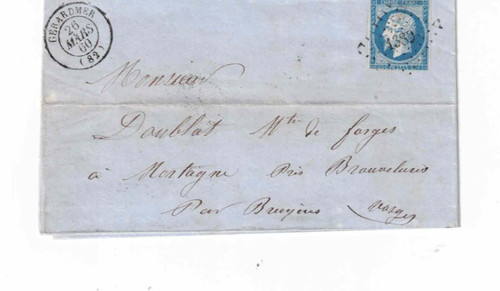 GERARDMER
26
MARS
60
(82)
EMPIRE FRANC
Monsieur
Doublat Mtre de forges
à Mortagne Près Brouvelieures
Par Bruyères
Vosges